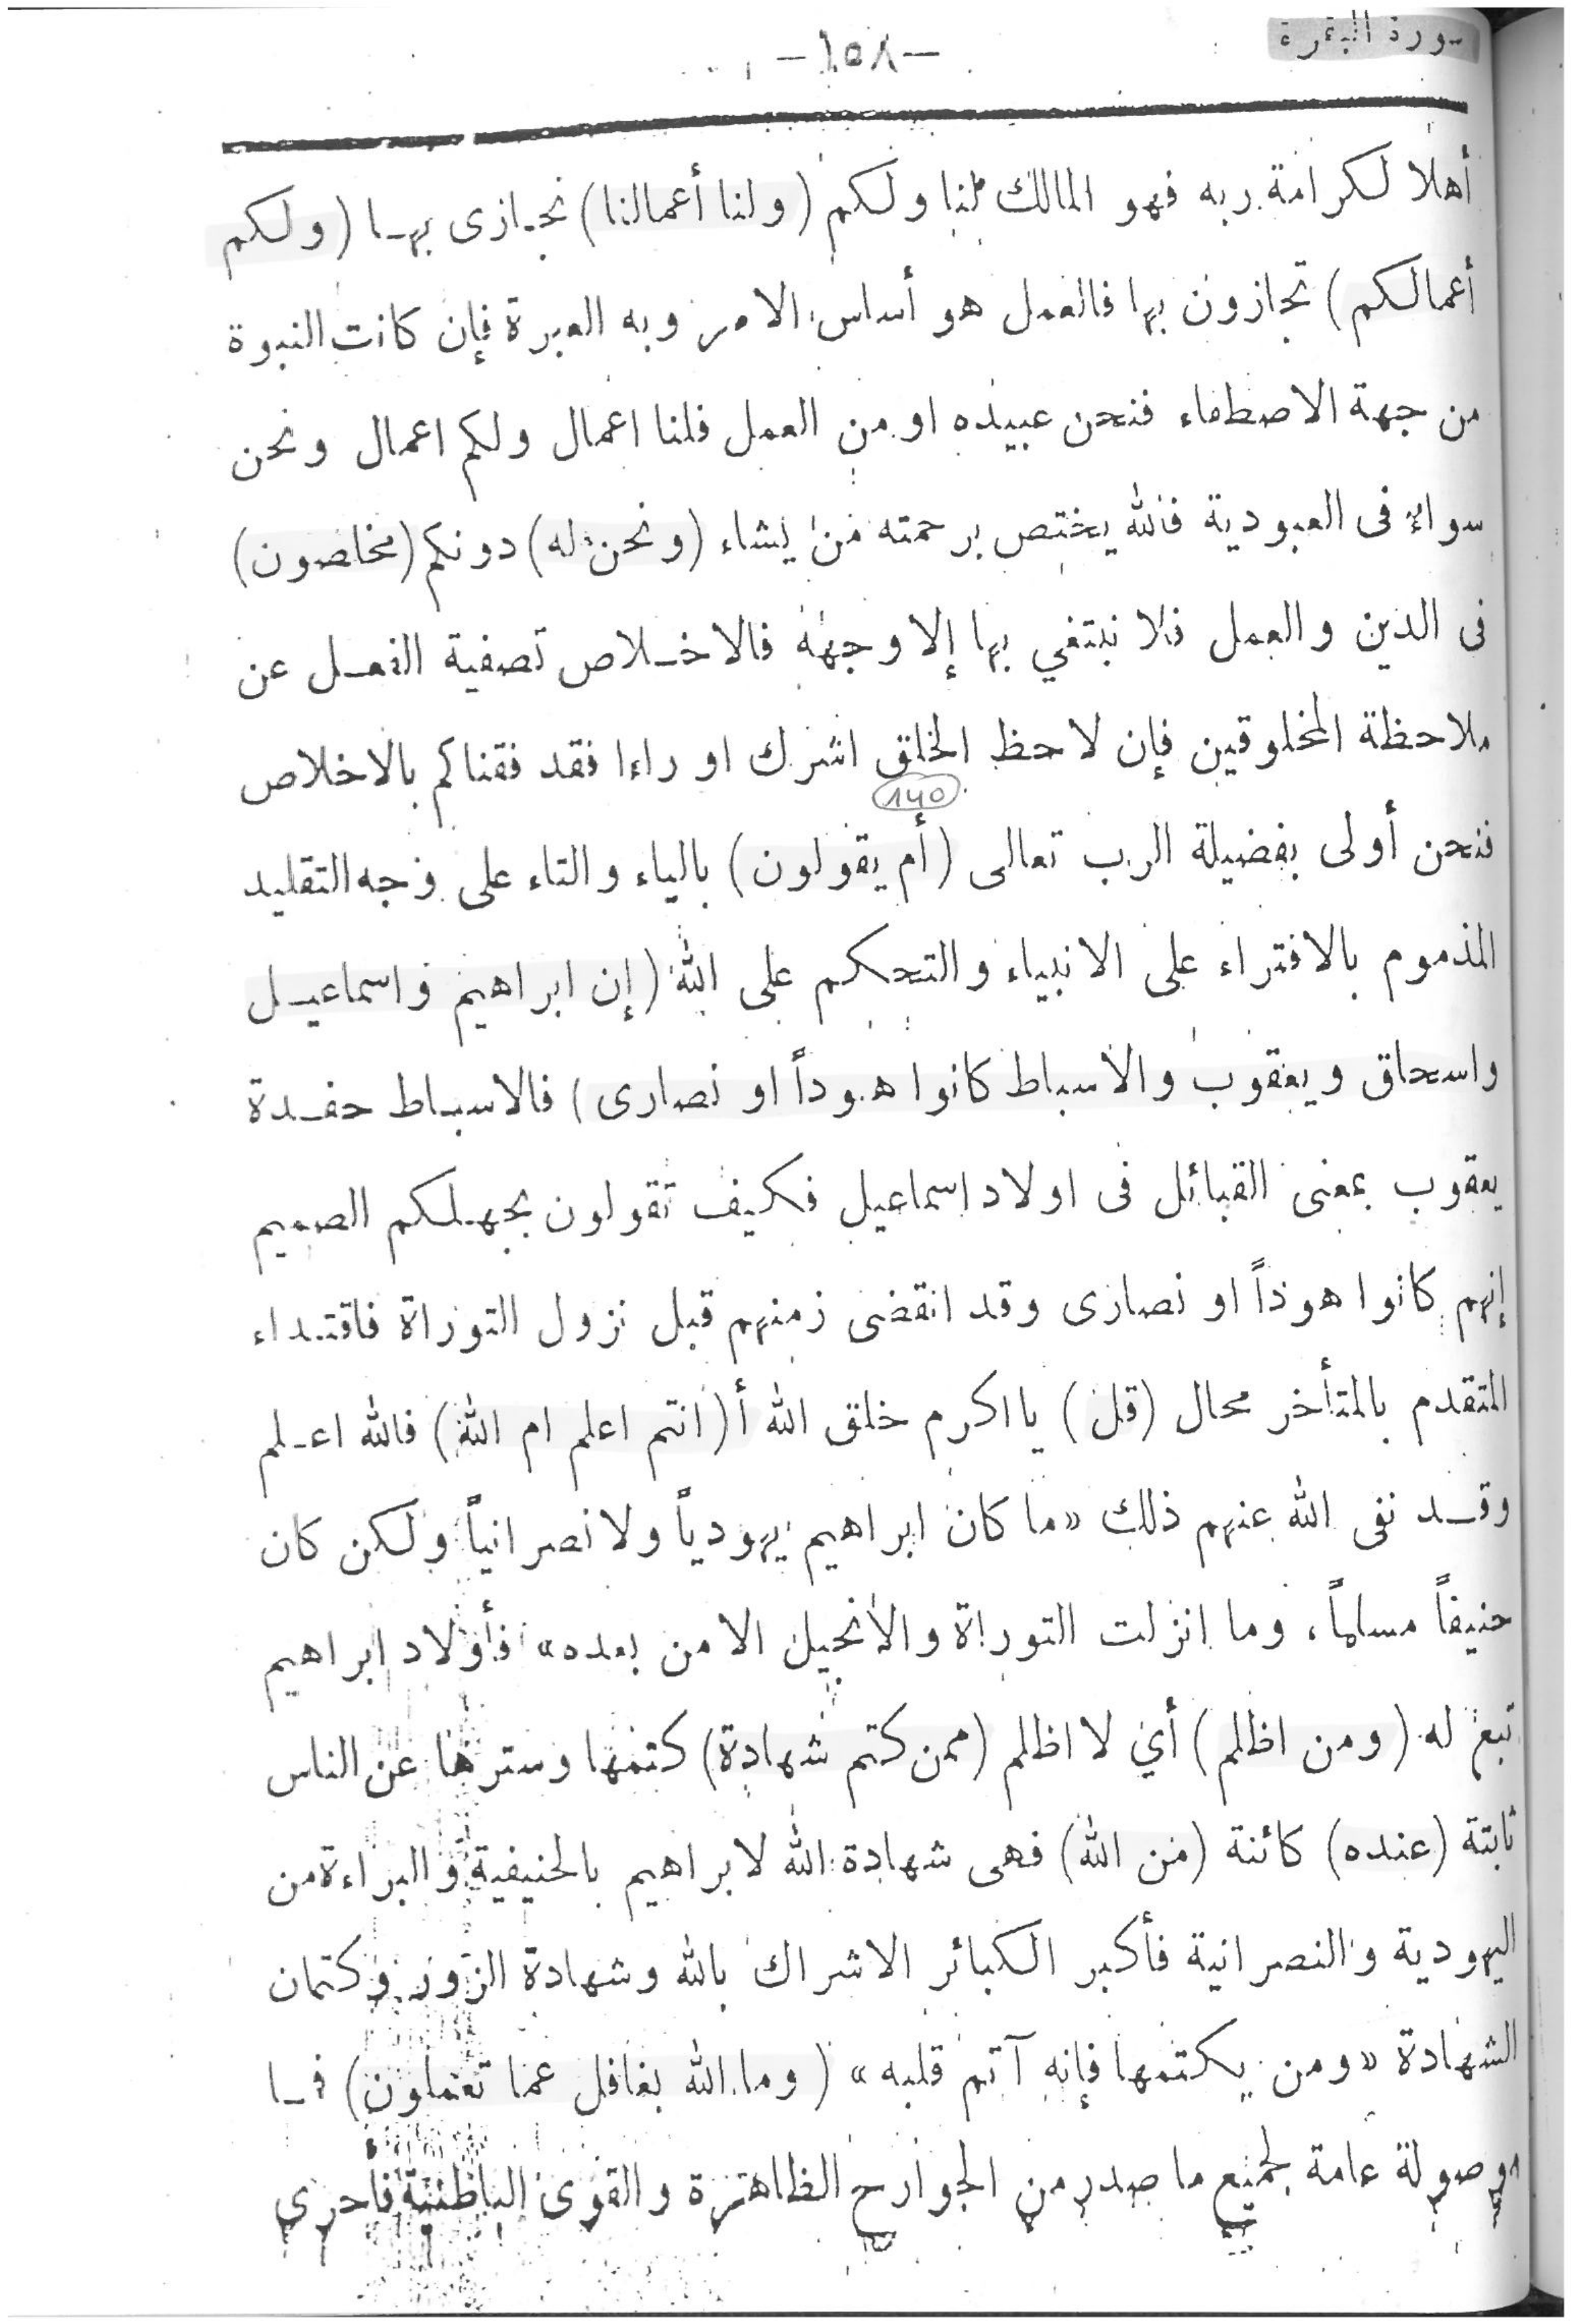 سورة البقرة
— ١٥٨ —
أهلا لكرامة ربه فهو المالك لنا ولكم (ولنا أعمالنا) نجازى بها (ولكم
أعمالكم) تجازون بها فالعمل هو أساس الامر وبه العبرة فإن كانت النبوة
من جهة الاصطفاء فنحن عبيده او من العمل فلنا اعمال ولكم اعمال ونحن
سواء فى العبودية فالله يختص برحمته من يشاء (ونحن له) دونكم (مخلصون)
فى الدين والعمل فلا نبتغي بها إلا وجهه فالاخلاص تصفية الفعل عن
ملاحظة المخلوقين فإن لاحظ الخلق اشرك او راءا فقد فقناكم بالاخلاص
140
فنحن أولى بفضيلة الرب تعالى (أم يقولون) بالياء والتاء على وجه التقليد
المذموم بالافتراء على الانبياء والتحكم على الله (إن ابراهيم واسماعيل
واسحاق ويعقوب والاسباط كانوا هوداً او نصارى) فالاسباط حفدة
يعقوب بمعنى القبائل فى اولاد اسماعيل فكيف تقولون بجهلكم الصميم
إنهم كانوا هوداً او نصارى وقد انقضى زمنهم قبل نزول التوراة فاقتداء
المتقدم بالمتأخر محال (قل) يا اكرم خلق الله أ(انتم اعلم ام الله) فالله اعلم
وقد نفى الله عنهم ذلك «ما كان ابراهيم يهودياً ولا نصرانياً ولكن كان
حنيفاً مسلماً، وما انزلت التوراة والانجيل الا من بعده» فأولاد ابراهيم
تبع له (ومن اظلم) أي لا اظلم (ممن كتم شهادة) كتمها وسترها عن الناس
ثابتة (عنده) كائنة (من الله) فهى شهادة الله لابراهيم بالحنيفية والبراءة من
اليهودية والنصرانية فأكبر الكبائر الاشراك بالله وشهادة الزور وكتمان
الشهادة «ومن يكتمها فإنه آثم قلبه» (وما الله بغافل عما تعملون) فما
موصولة عامة لجميع ما صدر من الجوارح الظاهرة والقوى الباطنية فأحرى